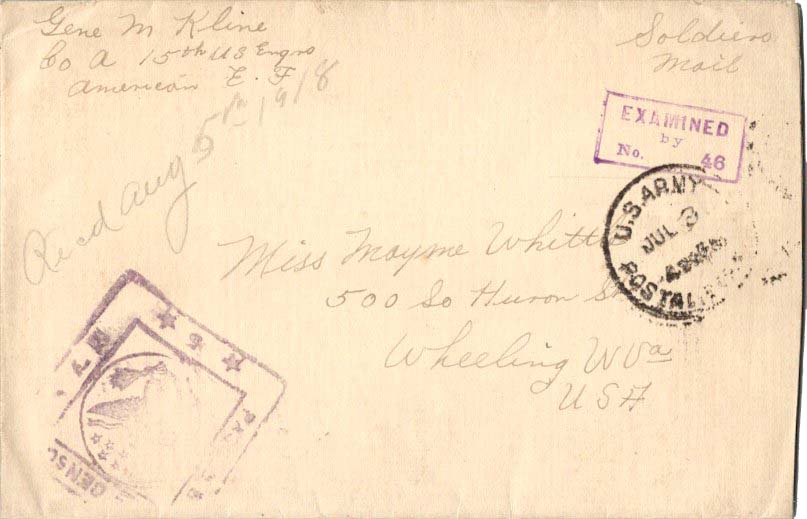 Gene M Kline
Co A 15th US Engrs
American E. F
Soldiers
Mail
Recd Aug 5th 1918
EXAMINED
by
No. 46
U.S. ARMY
JUL 3
POSTAL
Miss Mayme
500 So Huron St
Wheeling W Va
USA
CENSO